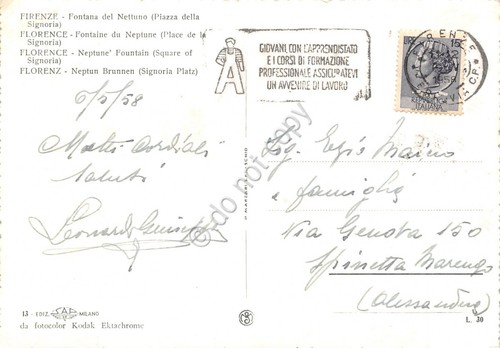 FIRENZE - Fontana del Nettuno (Piazza della
Signoria)
FLORENCE - Fontaine du Neptune (Place de la
Signoria)
FLORENCE - Neptune' Fountain (Square of
Signoria)
FLORENZ - Neptun Brunnen (Signoria Platz)
GIOVANI, CON L'APPRENDISTATO
E I CORSI DI FORMAZIONE
PROFESSIONALE ASSICURATEVI
UN AVVENIRE DI LAVORO
A
15
ITALIANA
6/5/58
Molti cordiali
saluti
Leonardo
Sig. Ezio Maino
e famiglia
Via Genova 150
Spinetta Marengo
(Alessandria)
13 - EDIZ. SAF MILANO
da fotocolor Kodak Ektachrome
L. 30
do not copy